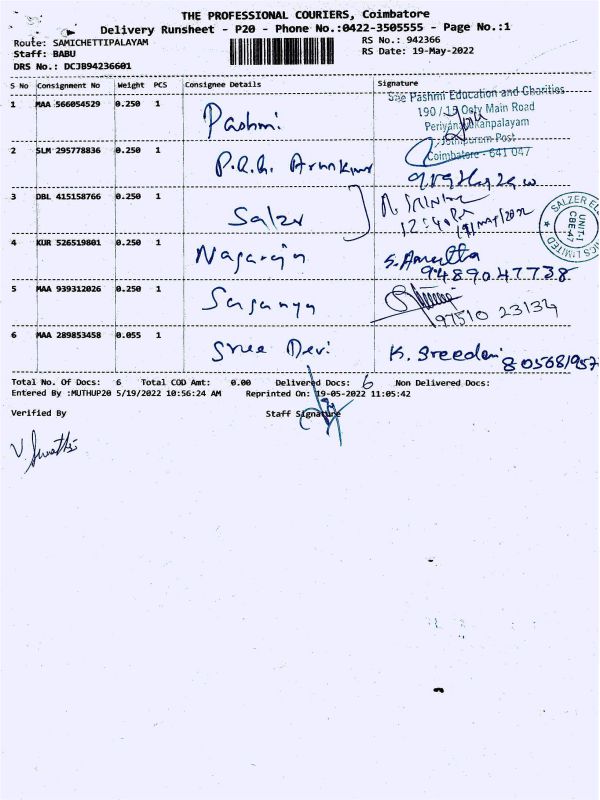 THE PROFESSIONAL COURIERS, Coimbatore
Delivery Runsheet - P20 - Phone No.:0422-3505555 - Page No.:1
Route: SAMICHETTIPALAYAM
RS No.: 942366
Staff: BABU
RS Date: 19-May-2022
DRS No.: DCJB94236601
S No Consignment No Weight PCS Consignee Details Signature
1 MAA 566054529 0.250 1 Pashmi
Education and Charities
Main Road
Coimbatore - 641 047
2 SLM 295778836 0.250 1 P.R.G. Arunkumar
3 DBL 415158766 0.250 1 Salzer
SALZER
UNIT-I
CBE-47
LIMITED
4 KUR 526519801 0.250 1 Nagarajn S. Amutha
9489047738
5 MAA 939312026 0.250 1
97510 23134
6 MAA 289853458 0.055 1 Sree Devi K. Sreedevi
Total No. Of Docs: 6 Total COD Amt: 0.00 Delivered Docs: 6 Non Delivered Docs:
Entered By :MUTHUP20 5/19/2022 10:56:24 AM Reprinted On: 19-05-2022 11:05:42
Verified By Staff Signature